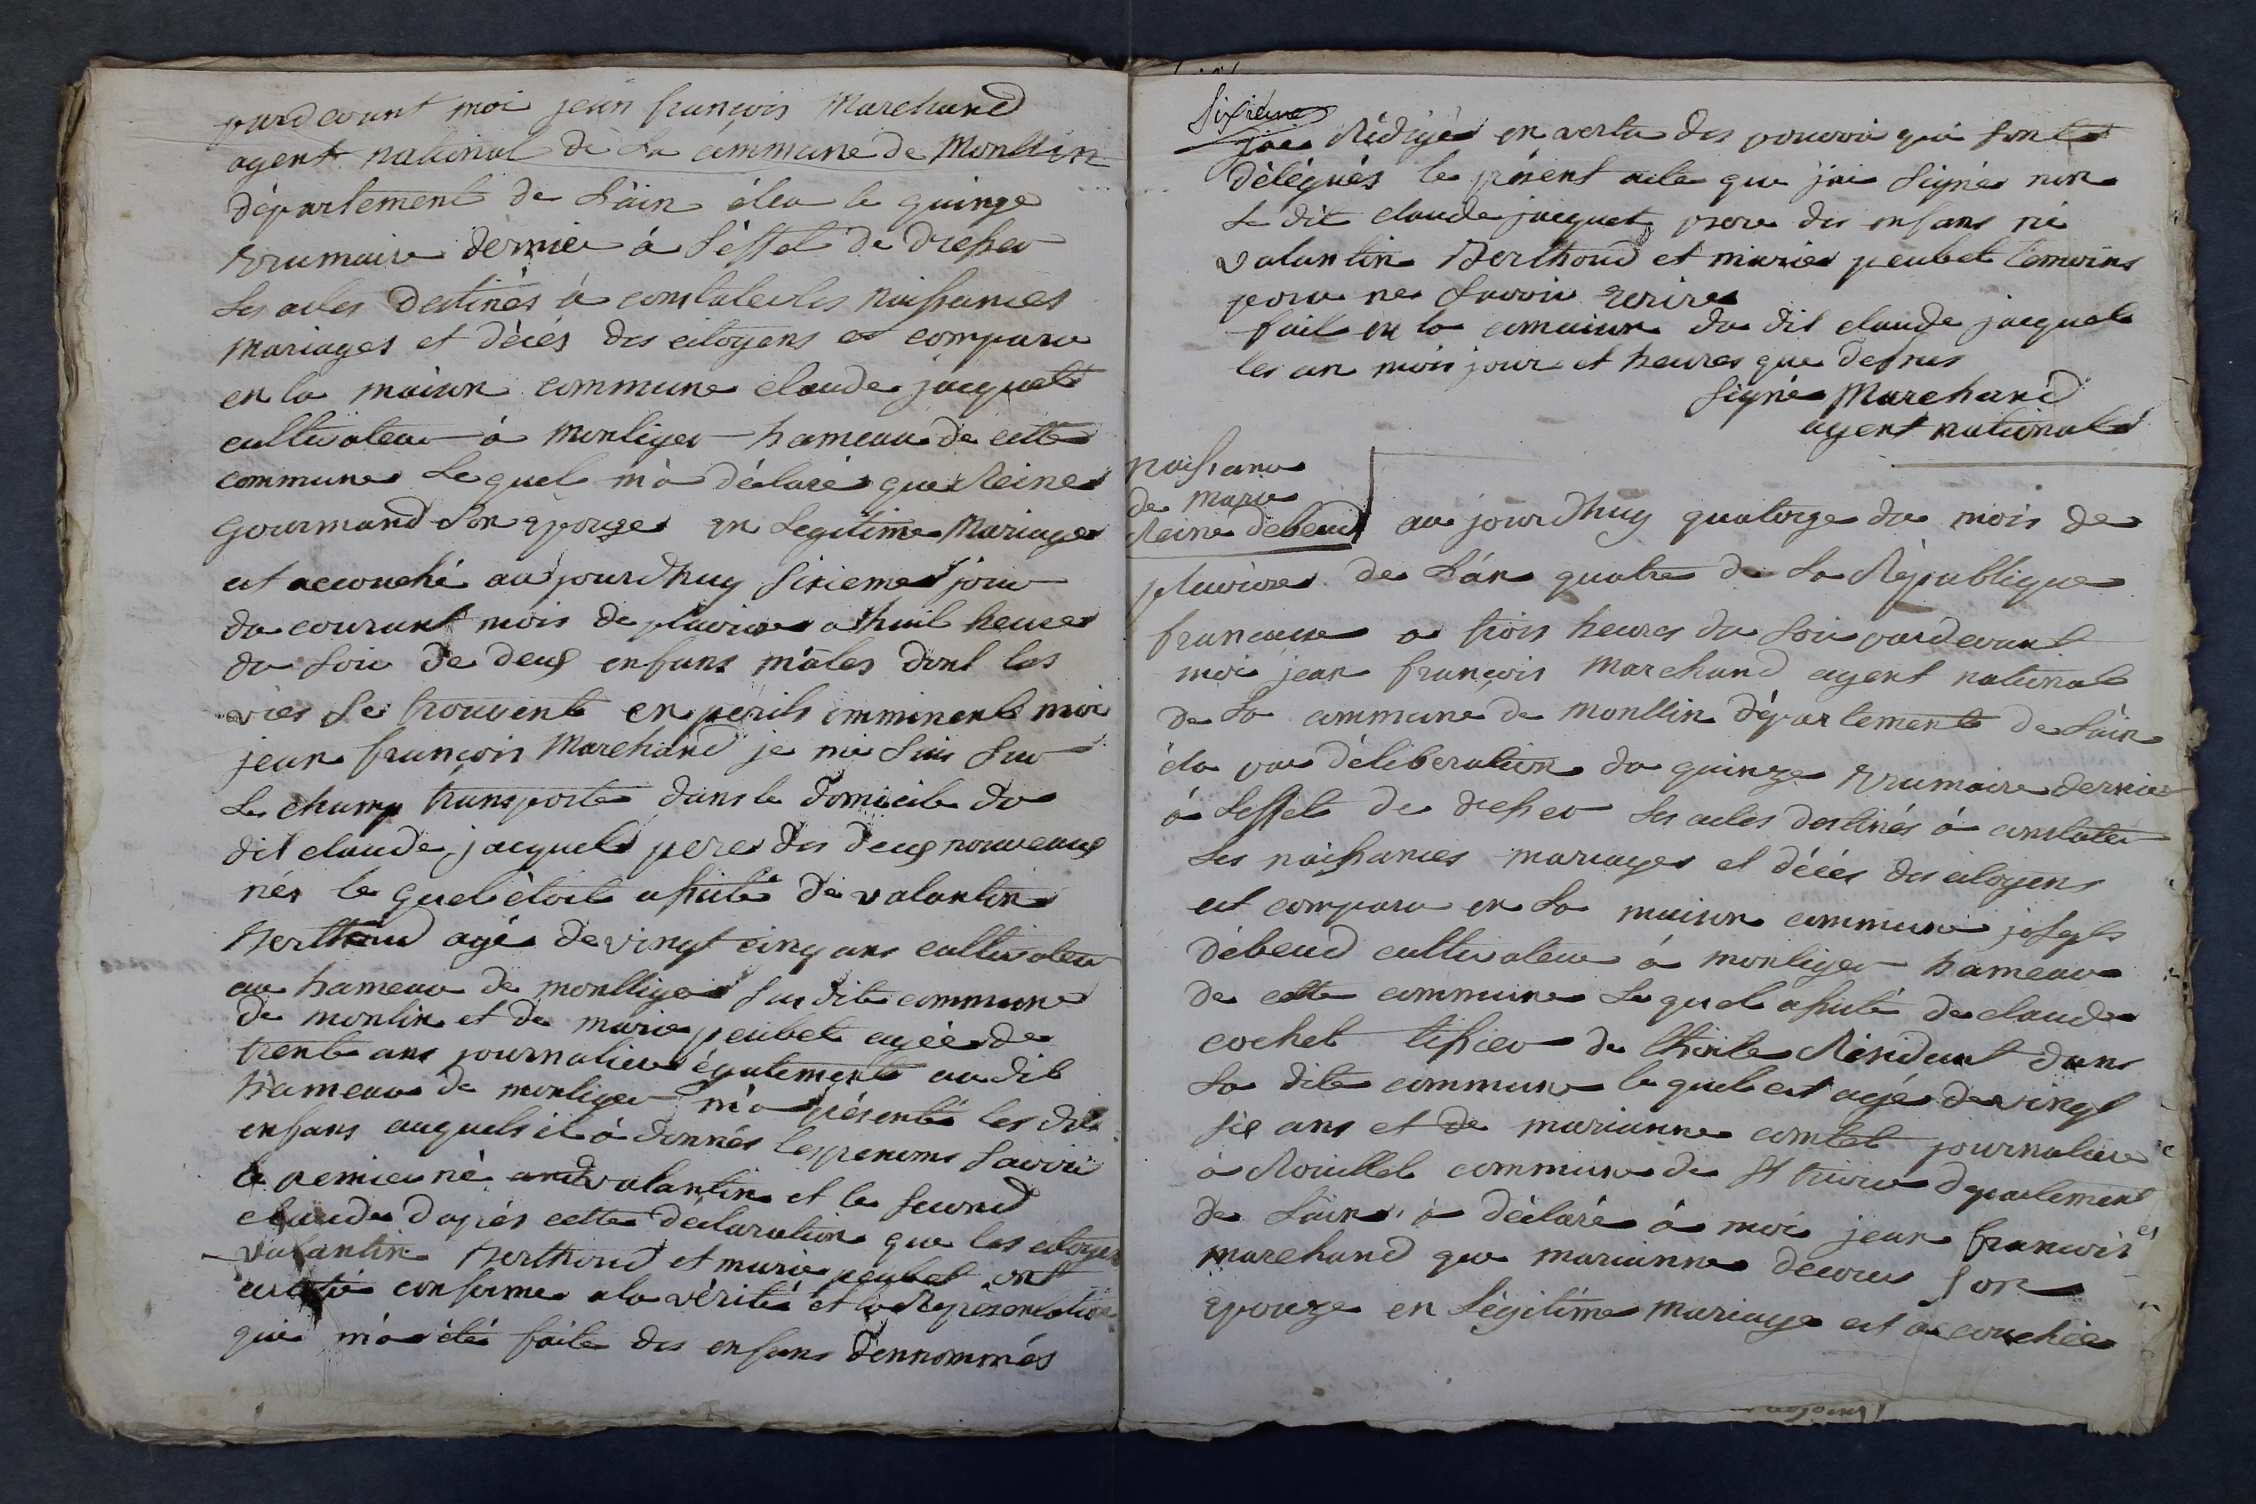 pardevant moi jean françois Marchand
agent national de La commune de Monttin
département de L'ain éleu le quinze
Brumaire dernier à L'effet de dresser
Les actes destinés à constater les naissances
mariages et décés des citoyens est comparu
en la maison commune claude jacquet
cultivateur à Montiger hameau de cette
commune Lequel m'a déclaré que Reine
Gourmand Son Epouze en Legitime Mariage
est accouché au jourd'huy Sixieme jour
du courant mois de pluviose a huit heures
du Soir de deux enfans mâles dont les
vies Se trouvent en perils imminent moi
jean françois Marchand je me Suis Sur
Le champ transporté dans le Domicile du
dit claude jacquet pere des deux nouveaux
nés le quel étoit assisté de valantin
Berthoud agé de vingt cinq ans cultivateur
au hameau de montliger Sus dite commune
de montin et de marie peubet agée de
trente ans journaliere également au dit
hameau de montiger m'a présenté les dits
enfans auquels il à donnés les prenoms Savoir
le premier né valantin et le Second
claude d'aprés cette déclaration que les citoyens
valantin Berthoud et marie peubet ont
conforme a la vérité et la Représentation
qui m'a été faite des enfans dennommés
Sixieme
jae Rédigé en vertu des pouvoir qui Sont
délégués le présent acte que jai Signé non
Le dit claude jacquet pere des enfans ni
valantin Berthoud et marie peubet témoins
pour ne Savoir Ecrire
fait en la maison du dit claude jacquet
les an mois jour et heures que dessus
Signé Marchand
agent national
Naissance
de Marie
Reine debeud
au jourd'huy quatorze du mois de
pluviose de L'an quatre de La République
francaise a trois heures du Soir pardevant
moi jean françois Marchand agent national
de La commune de Monttin département de L'ain
élu par déliberation du quinze Brumaire dernier
à Leffet de dresser Les actes destinés à constater
Les naissances mariages et décés des citoyens
est comparu en La maison commune joseph
débeud cultivateur à montiger hameau
de cette commune Le quel assisté de claude
cochet tissier de thoile Résidant dans
La dite commune le quel est agé de vingt
six ans et de marianne comtet journaliere
à Rouillet commune de St trivier département
de L'ain, à déclaré à moi jean francois
marchand que marianne Son
Epouze en Légitime mariage est accouchée